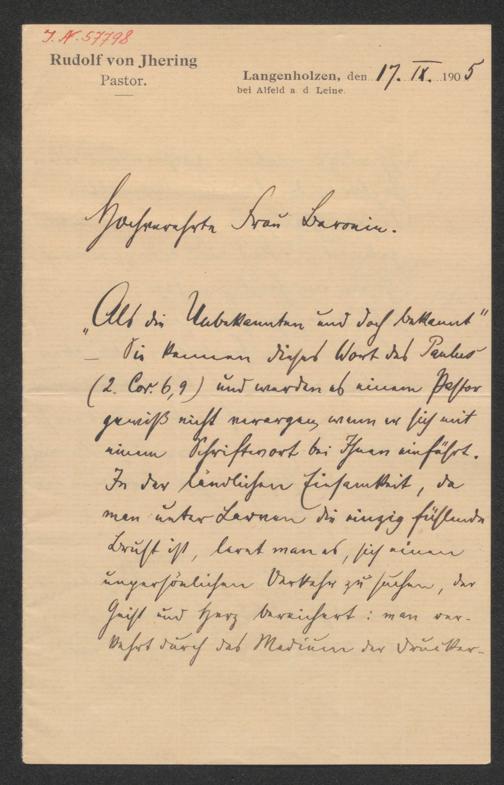 J. N. 57798
Rudolf von Jhering
Pastor.
Langenholzen, den 17. IX. 1905
bei Alfeld a. d. Leine.
Hochverehrte Frau Baronin.
„Als die Unbekannten und doch bekannt“
– Sie kennen dieses Wort des Paulus
(2. Cor. 6,9) und werden es einem Pastor
gewiß nicht verargen, wenn er sich mit
einem Schriftwort bei Ihnen einführt.
In der ländlichen Einsamkeit, da
man unter Larven die einzig fühlende
Brust ist, lernt man es, sich einen
unpersönlichen Verkehr zu suchen, der
Geist und Herz bereichert: man ver-
kehrt durch das Medium der Drucker-